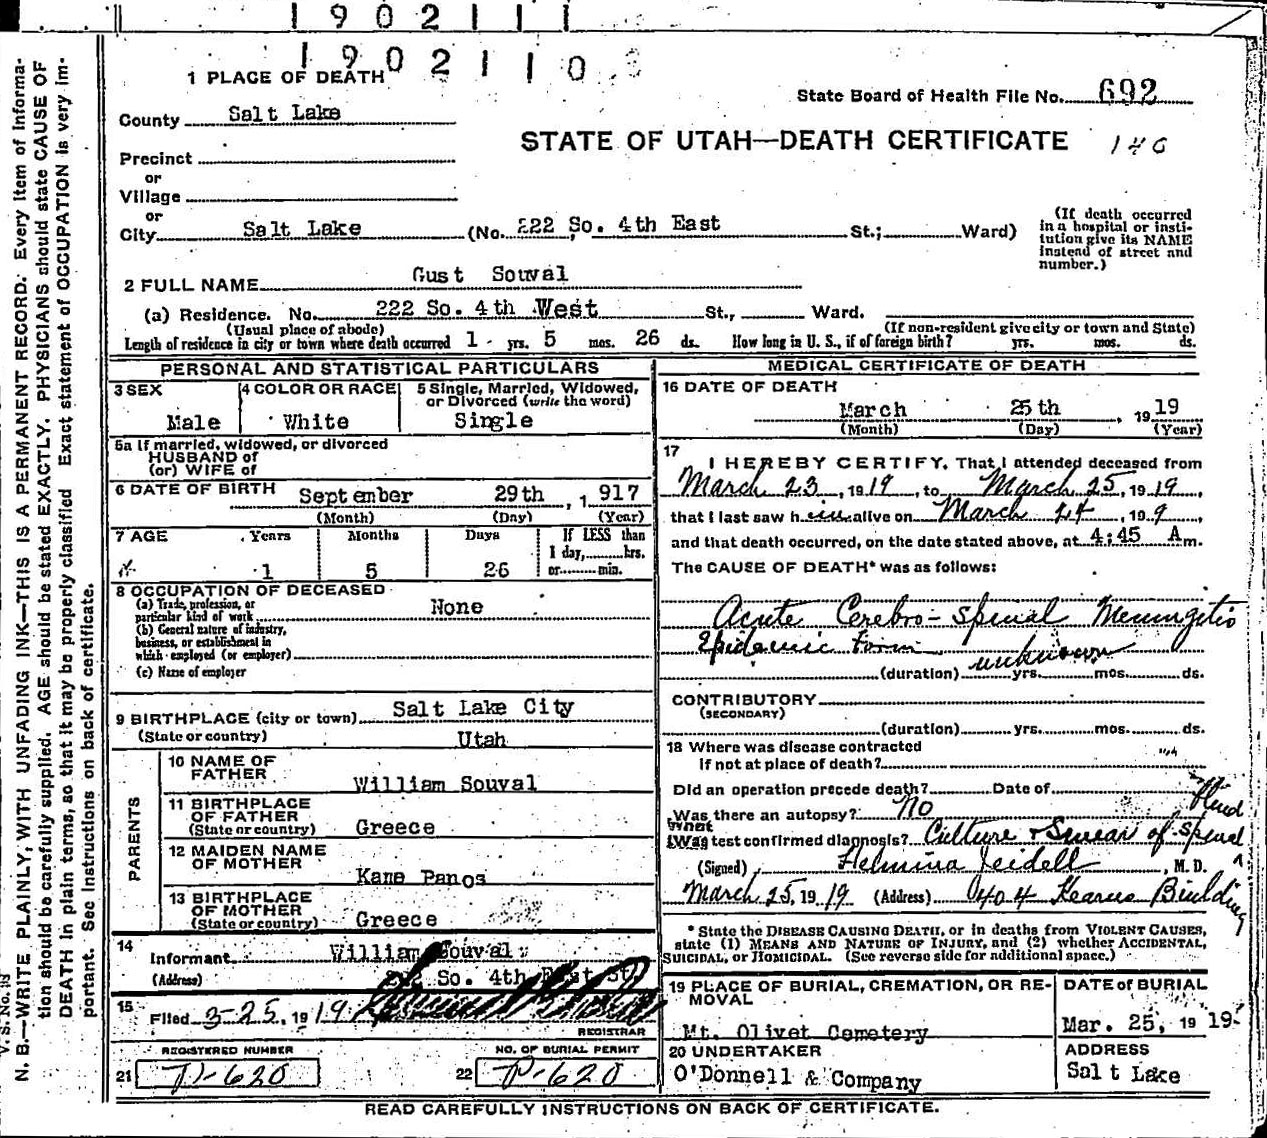 1902111
1902110
1 PLACE OF DEATH
State Board of Health File No. 692
County Salt Lake
STATE OF UTAH—DEATH CERTIFICATE 146
Precinct
or
Village
or
City Salt Lake (No. 222 So. 4th East St.; Ward)
(If death occurred in a hospital or insti-
tution give its NAME
instead of street and
number.)
2 FULL NAME Gust Souval
(a) Residence. No. 222 So. 4th West St., Ward.
(Usual place of abode) (If non-resident give city or town and State)
Length of residence in city or town where death occurred 1 yrs. 5 mos. 26 ds. How long in U. S., if of foreign birth? yrs. mos. ds.
PERSONAL AND STATISTICAL PARTICULARS
3 SEX Male
4 COLOR OR RACE White
5 Single, Married, Widowed,
or Divorced (write the word)
Single
5a If married, widowed, or divorced
HUSBAND of
(or) WIFE of
6 DATE OF BIRTH September 29th, 1917
(Month) (Day) (Year)
7 AGE Years Months Days If LESS than
1 day, hrs.
1 5 26 or min.
8 OCCUPATION OF DECEASED
(a) Trade, profession, or
particular kind of work None
(b) General nature of industry,
business, or establishment in
which employed (or employer)
(c) Name of employer
9 BIRTHPLACE (city or town) Salt Lake City
(State or country) Utah
PARENTS
10 NAME OF
FATHER William Souval
11 BIRTHPLACE
OF FATHER
(State or country) Greece
12 MAIDEN NAME
OF MOTHER Kane Panos
13 BIRTHPLACE
OF MOTHER
(State or country) Greece
14
Informant William Souval
(Address) So. 4th East St.
15 Filed 3-25, 1919
REGISTRAR
REGISTERED NUMBER
21 D-620
NO. OF BURIAL PERMIT
22 P-620
MEDICAL CERTIFICATE OF DEATH
16 DATE OF DEATH
March 25th, 1919
(Month) (Day) (Year)
17
I HEREBY CERTIFY, That I attended deceased from
March 23, 1919, to March 25, 1919,
that I last saw him alive on March 24, 199,
and that death occurred, on the date stated above, at 4:45 A m.
The CAUSE OF DEATH* was as follows:
Acute Cerebro-Spinal Meningitis
Epidemic form
(duration) unknown yrs. mos. ds.
CONTRIBUTORY
(SECONDARY)
(duration) yrs. mos. ds.
18 Where was disease contracted
If not at place of death?
Did an operation precede death? Date of
Was there an autopsy? No
What
Was test confirmed diagnosis? Culture & Smear of Spinal fluid
(Signed) Helmina Jeidell, M. D.
March 25, 1919 (Address) 404 Kearns Building
* State the DISEASE CAUSING DEATH, or in deaths from VIOLENT CAUSES,
state (1) MEANS AND NATURE OF INJURY, and (2) whether ACCIDENTAL,
SUICIDAL, or HOMICIDAL. (See reverse side for additional space.)
19 PLACE OF BURIAL, CREMATION, OR RE-
MOVAL
Mt. Olivet Cemetery
DATE of BURIAL
Mar. 25, 1919
20 UNDERTAKER
O'Donnell & Company
ADDRESS
Salt Lake
READ CAREFULLY INSTRUCTIONS ON BACK OF CERTIFICATE.
V. S. No.
N. B.—WRITE PLAINLY, WITH UNFADING INK—THIS IS A PERMANENT RECORD. Every item of informa-
tion should be carefully supplied. AGE should be stated EXACTLY. PHYSICIANS should state CAUSE OF
DEATH in plain terms, so that it may be properly classified. Exact statement of OCCUPATION is very im-
portant. See Instructions on back of certificate.